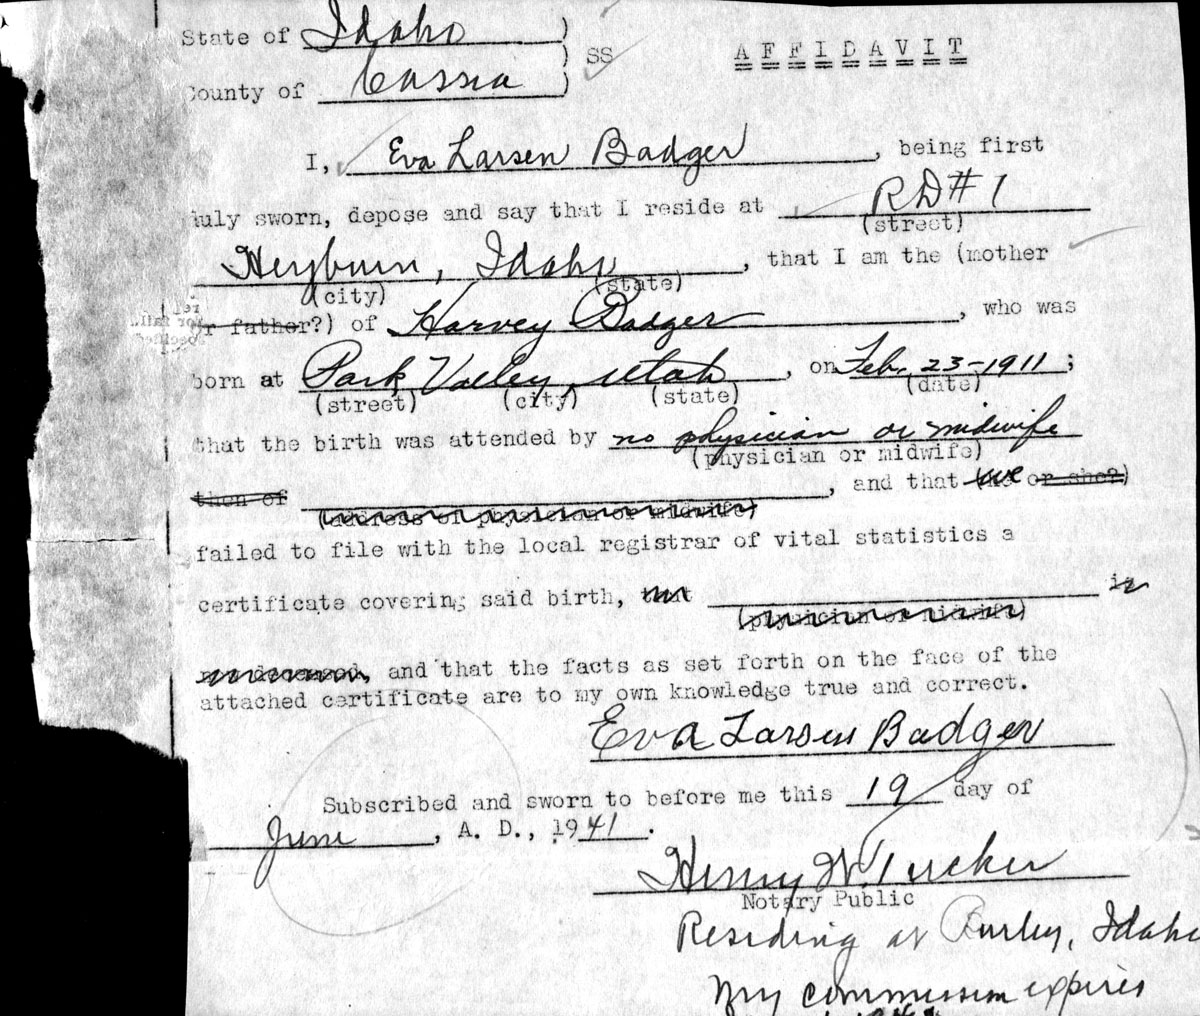 State of Idaho )
) SS AFFIDAVIT
County of Cassia )
I, Eva Larsen Badger, being first
duly sworn, depose and say that I reside at RD#1
(street)
Heyburn, Idaho, that I am the (mother
(city) (state)
or father?) of Harvey Badger, who was
born at Park Valley, Utah, on Feb. 23-1911;
(street) (city) (state) (date)
that the birth was attended by no physician or midwife
(physician or midwife)
then of , and that we or she?)
(address of physician or midwife)
failed to file with the local registrar of vital statistics a
certificate covering said birth, that is
(physician or midwife)
and that the facts as set forth on the face of the
attached certificate are to my own knowledge true and correct.
Eva Larsen Badger
Subscribed and sworn to before me this 19 day of
June, A. D., 1941.
Henry W. Tucker
Notary Public
Residing at Burley, Idaho
My commission expires